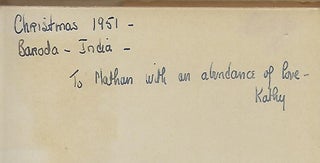 Christmas 1951 -
Baroda - India -
To Nathan with an abundance of love -
Kathy